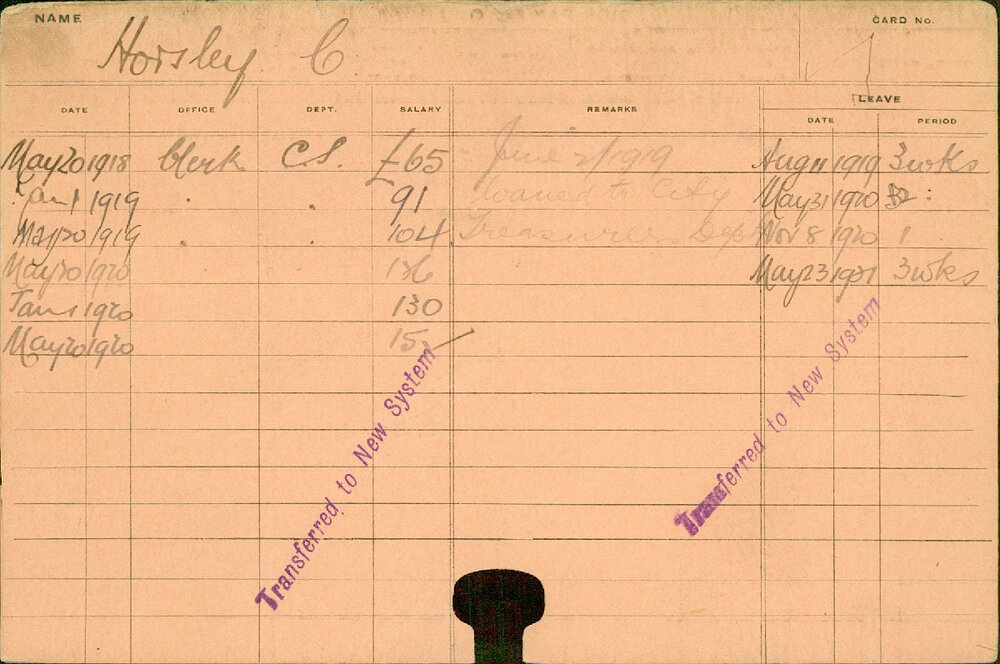 NAME
CARD No.
Horsley C
LEAVE
DATE OFFICE DEPT. SALARY REMARKS
DATE PERIOD
May 20 1918 Clerk C.S. £65 - June 2/1919 Aug 11 1919 3 wks
Jan 1 1919 " " 91 loaned to City May 31 1920
May 20 1919 " " 104 Treasurers Dept Nov 8 1920 1
May 20 1920 May 23 1921 3 wks
Jan 1 1920 130
May 20 1920
Transferred to New System
Transferred to New System